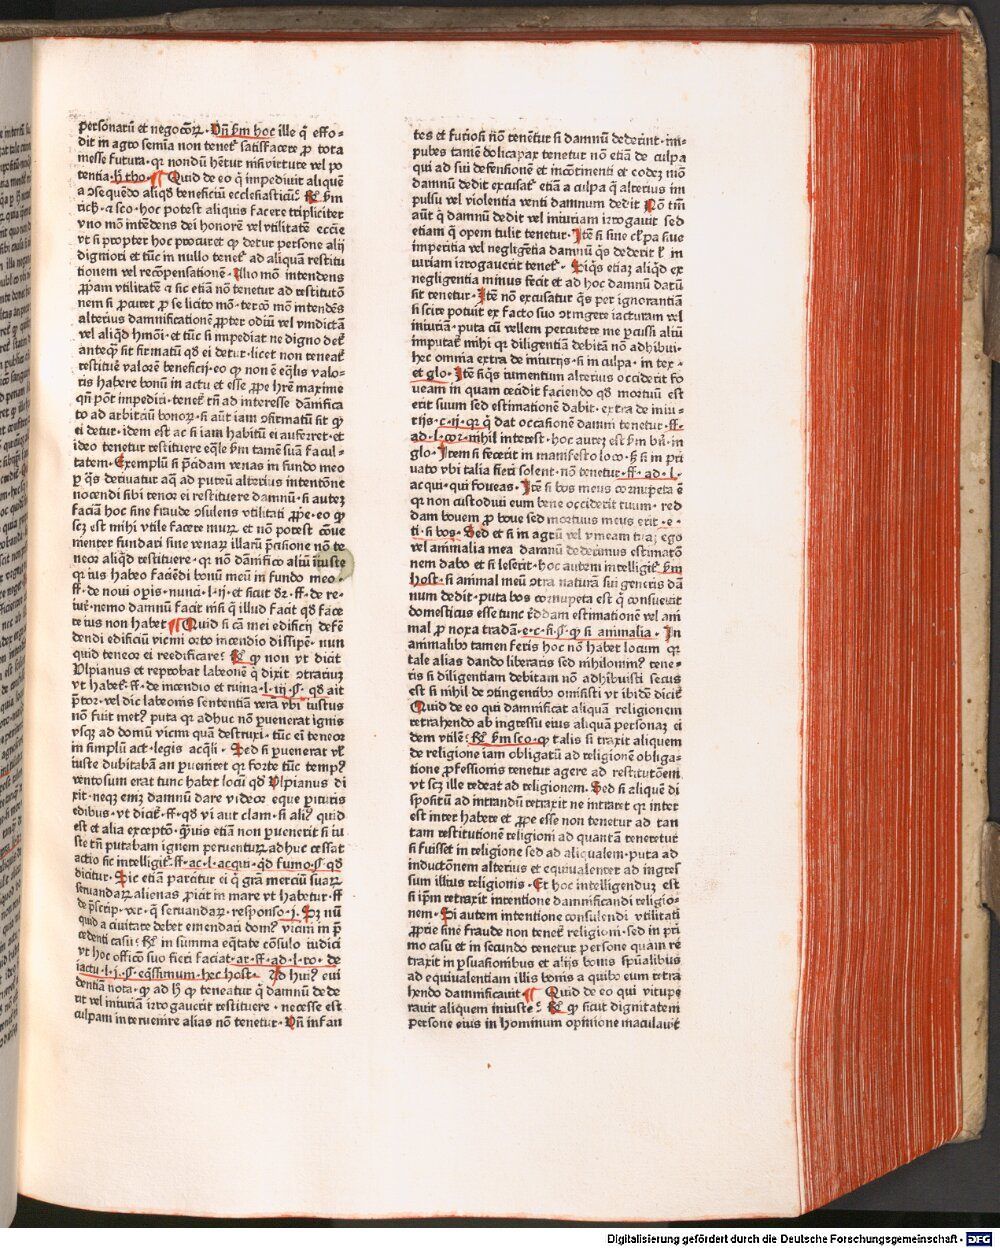 personarū et negocōꝝ · Vn̄ ẜm hoc ille q̄ effo⸗
dit in agro semīa non tenet᷑ satisfacere ꝓ tota
messe futura · qꝛ nondū hētur nisi virtute vel po
tentia · h̄ tho · ¶ Quid de eo q̄ impediuit aliquē
a ꝯsequēdo aliqd̄ beneficiū ecclesiasticū? R̄ ẜm
rich · ⁊ sco · hoc potest aliquis facere tripliciter
vno mō intēdens dei honorē vel vtilitatē eccīe
vt si propter hoc procuret ꝙ detur persone alij
digniori et tūc in nullo tenet᷑ ad aliquā restitu
tionem vel recōpensationē · Alio mō intendens
ꝓpam vtilitatē ⁊ sic etiā nō tenetur ad restitutō
nem si ꝓcuret ꝓ se licito mō · tercō mō intendēs
alterius damnificationē ꝓpter odiū vel vindictā
vel aliqd̄ hmōi · et tūc si impediat ne digno det᷑
anteqͣ sit firmatū qd̄ ei detur · licet non teneat᷑
restituē valorē beneficij · eo ꝙ non ē eq̄lis valo⸗
ris habere bonū in actu et esse ꝓpe hr̄e maxime
qn̄ pōt impediri · tenet᷑ tn̄ ad interesse dānifica
to ad arbitriū bonoꝝ · si aūt iam ꝯfirmatū sit ꝙ
ei detur · idem est ac si iam habitū ei auferret · et
ideo tenetur restituere eq̄le ẜm tamē suā facul⸗
tatem · Exemplū si p̄cidam venas in fundo meo
ꝑ q̄s deriuatur aq̄ ad puteū alterius intentōne
nocendi sibi teneor ei restituere damnū · si autez
faciā hoc sine fraude ꝯsulens vtilitati ꝓpe · eo ꝙ
scꝫ est mihi vtile facere muꝝ et nō potest cōue
nienter fundari sine venaꝝ illarū p̄cisione nō te
neor aliqd̄ restituere · qꝛ nō dānifico aliū iniuste
qꝛ ius habeo faciēdi bonū meū in fundo meo ·
ff · de noui oꝑis · nunci · l · ij · et sicut dꝛ · ff · de re⸗
iur · nemo damnū facit nisi q̄ illud facit qd̄ face
re ius non habet ¶ Quid si cā mei edificij defē
dendi edificiū vicini orto incendio dissipē · nun
quid teneor ei reedificare? R̄ ꝙ non vt dicit
Vlpianus et reprobat labeonē q̄ dixit ꝯtrariuꝫ
vt habet᷑ · ff · de incendio et ruina · l · iij · § · qd̄ ait
p̄tor · vel dic labeonis sententiā verā vbi iustus
nō fuit met᷑? puta qꝛ adhuc nō ꝑuenerat ignis
vsqꝫ ad domū vicini quā destruxi · tūc ei teneor
in simplū act · legis acq̄li · Sed si ꝑuenerat vl̓
iuste dubitabā an ꝑueniret qꝛ forte tūc tempꝰ
ventosum erat tunc habet locū qd̄ Vlpianus di
xit · neqꝫ eniꝫ damnū dare videor eque ꝑituris
edibus · vt dicit᷑ · ff · qd̄ vi aut clam · si aliꝰ quid
est et alia exceptō · q̄uis etiā non ꝑuenerit si iu
ste tn̄ putabam ignem peruenturꝫ adhuc cessat
actio sic intelligit᷑ · ff · ac · l · acqui · q̄d fumo · § · qd̄
dicitur · Sic etiā parcitur ei q̄ gr̄a merciū suaꝝ
seruandaꝝ alienas ꝓicit in mare vt habetur · ff
de p̄scrip · ver · q̄ seruandaꝝ · responso · j · Sꝫ nū
quid a ciuitate debet emendari domꝰ vicini in p̄
cedenti casu? R̄ in summa eq̄tate cōsulo iudici
vt hoc officō suo fieri faciat · ar · ff · ad · l · ro · de
iactu · l · j · § · eq̄ssimum · hec host · Ad huiꝰ eui
dentiā nota · ꝙ ad h̄ ꝙ teneatur q̄ damnū de de
rit vel iniuriam irrogauerit restituere · necesse est
culpam interuenire alias nō tenetur · Vn̄ infan
tes et furiosi nō tenētur si damnū dederint · im⸗
pubes tamē doli capax tenetur nō etiā de culpa
qui ad sui defensionē et incōtinenti et codeꝫ mō
damnū dedit excusat᷑ etiā a culpa q̄ alterius im
pulsu vel violentia venti damnum dedit Nō tm̄
aūt q̄ damnū dedit vel iniuriam irrogauit sed
etiam q̄ opem tulit tenetur · Itē si sine cl̓pa siue
imperitia vel negligētia damnū q̄s dederit l̓ in
iuriam irrogauerit tenet᷑ · Siq̄s etiaꝫ aliqd̄ ex
negligentia minus fecit et ad hoc damnū datū
sit tenetur · Itē nō excusatur q̄s per ignorantiā
si scire potuit ex facto suo ꝯtingere iacturam vel
iniuriā · puta cū vellem percutere me ꝑcussi aliū
imputat᷑ mihi qꝛ diligentiā debitā nō adhibui ·
hec omnia extra de iniurijs · si in culpa · in tex ·
et glo · Itē siq̄s iumentum alterius occiderit fo
ueam in quam cecidit faciendo qd̄ mortuū est
erit suum sed estimationē dabit · extra de iniu⸗
rijs · c · ij · qꝛ q̄ dat occasionē damni tenetur · ff ·
ad · l · cor · nihil interest · hoc autez est ẜm bn̄ · in
glo · Item si fecerit in manifesto loco · sꝫ si in pri
uato vbi talia fieri solent · nō tenetur · ff · ad · l ·
acqui · qui foueas · Itē si bos meus cornupeta ē
qꝛ non custodiui eum bene occiderit tuum · red
dam bouem ꝓ boue sed mortuus meus erit · e ·
ti · si bos · Sed et si in agrū vel vineam tuaꝫ ego
vel animalia mea damnū dederimus estimatō
nem dabo et si leserit · hoc autem intelligit᷑ ẜm
Host · si animal meū ꝯtra naturā sui generis dā
num dedit · puta bos cornupeta est q̄ consueuit
domesticus esse tunc r̄ddam estimationē vel ani
mal ꝓ noxa tradā · e · c · si · § · ꝙ si animalia · In
animalibꝰ tamen feris hoc nō habet locum qꝛ
tale alias dando liberaris sed nihilominꝰ tene⸗
ris si diligentiam debitam nō adhibuisti secus
est si nihil de ꝯtingentibꝰ omisisti vt ibidē dicit᷑
Quid de eo qui damnificat aliquā religionem
retrahendo ab ingressu eius aliquā personaꝫ ei
dem vtilē? R̄ ẜm sco · ꝙ talis si traxit aliquem
de religione iam obligatū ad religionē obliga⸗
tione ꝓfessionis tenetur agere ad restitutōem
vt scꝫ ille redeat ad religionem · Sed si aliquē di
spositū ad intrandū retraxit ne intraret qꝛ inter
est inter habere et ꝓpe esse non tenetur ad tan
tam restitutionē religioni ad quantā teneretur
si fuisset in religione sed ad aliqualem · puta ad
inductōnem alterius et equiualenter ad ingres
sum illius religionis · Et hoc intelligenduꝫ est
si ip̄m retraxit intentione damnificandi religio⸗
nem · Si autem intentione consulendi vtilitati
ꝓprie sine fraude non tenet᷑ religioni · sed in pri
mo casu et in secundo tenetur persone quam re
traxit in ꝑsuasionibus et alijs bonis spūalibus
ad equiualentiam illis bonis a quibꝰ eum retra
hendo damnificauit ¶ Quid de eo qui vitupe
rauit aliquem iniuste? R̄ ꝙ sicut dignitatem
persone eius in hominum opinione maculauit
Digitalisierung gefördert durch die Deutsche Forschungsgemeinschaft - DFG